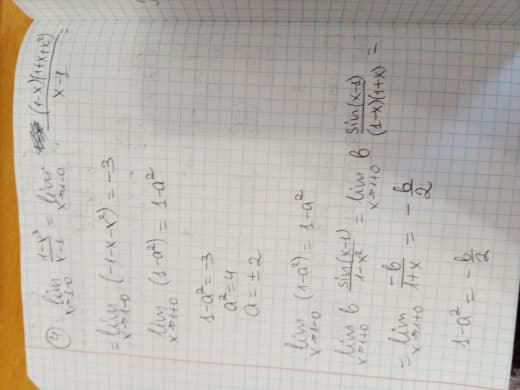 4) lim x→1-0 (1-x³)/(x-1) = lim x→1-0 (1-x)(1+x+x²)/(x-1) =
= lim x→1-0 (-1-x-x²) = -3
lim x→1+0 (1-a²) = 1-a²
1-a² = -3
a² = 4
a = ± 2
lim x→1-0 (1-a²) = 1-a²
lim x→1+0 b sin(x-1)/(1-x²) = lim x→1+0 b sin(x-1)/((1-x)(1+x)) =
= lim x→1+0 -b/(1+x) = -b/2
1-a² = -b/2